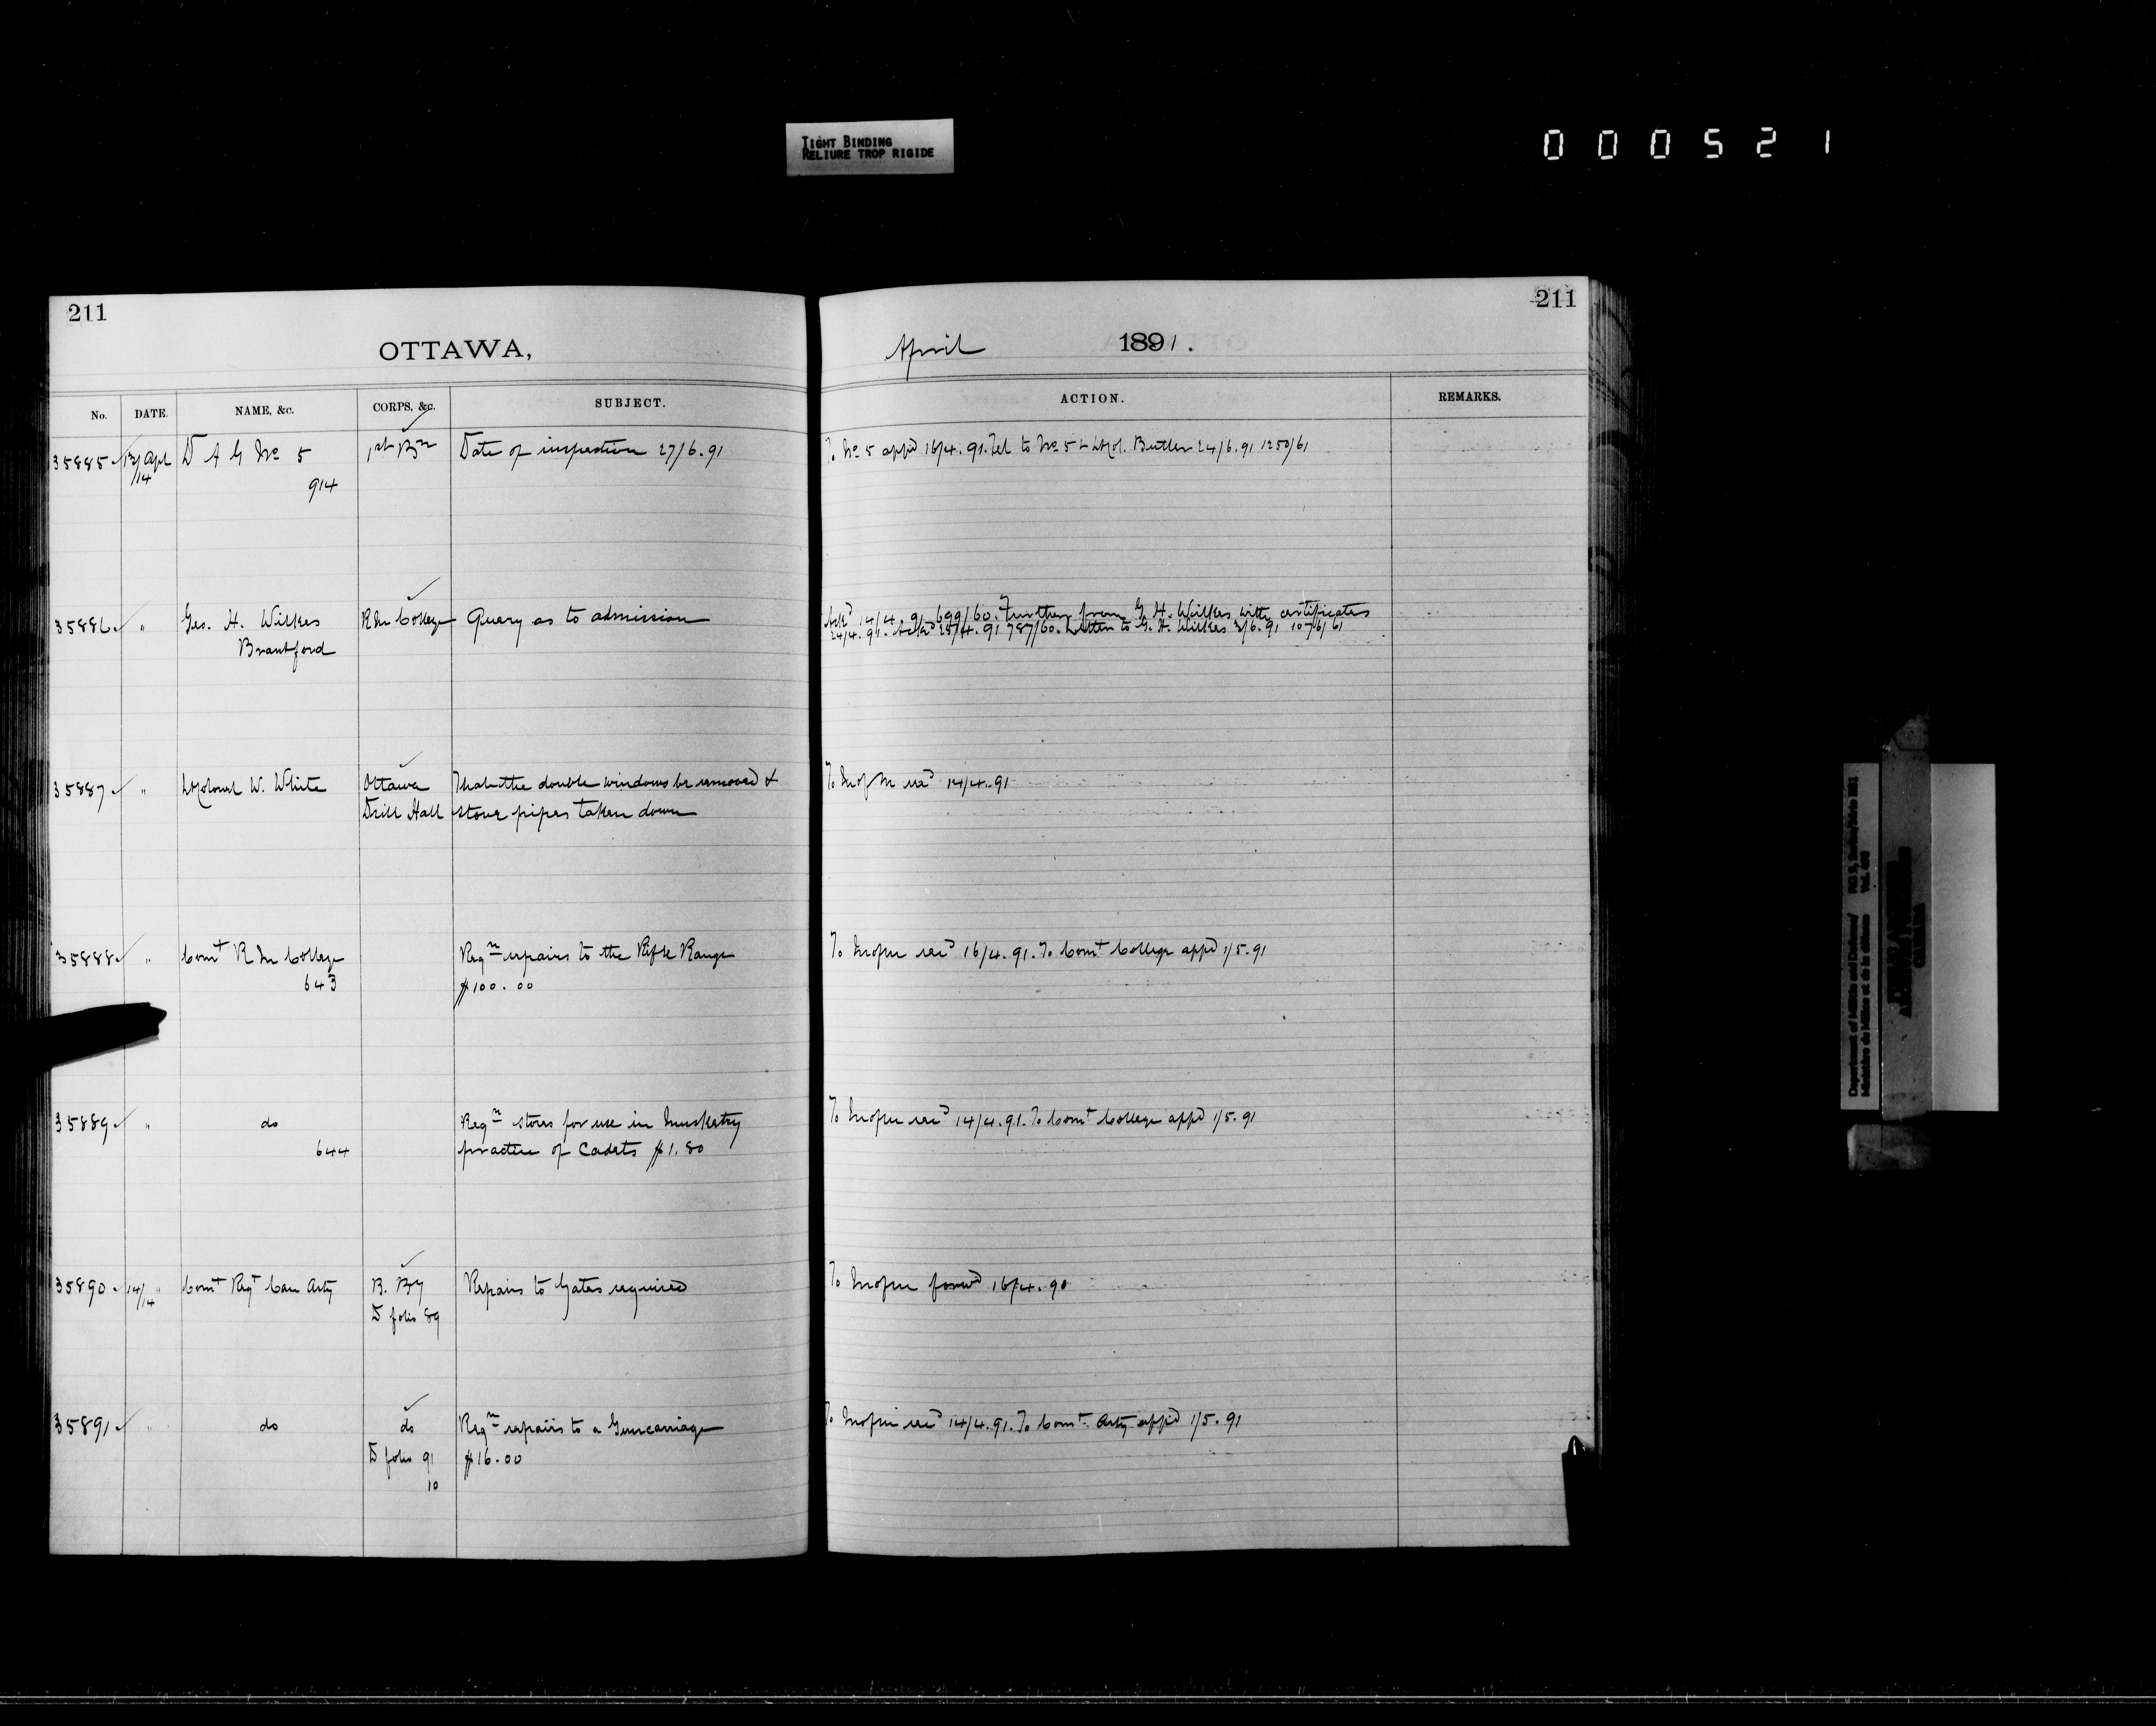 TIGHT BINDING
RELIURE TROP RIGIDE
000521
211
211
OTTAWA,
April 1891.
No. DATE. NAME, &c. CORPS, &c. SUBJECT. ACTION. REMARKS.
35885 13/Apl D A G No 5 1st Bn Date of inspection 27/6.91 To No 5 appd 16/4.91. Tel to No 5 & Lt Col. Butler 24/6.91 1250/61
/14 914
35886 " Geo. H. Wilkes R M College Query as to admission Ackd 14/4.91 699/60. Further from G. H. Wilkes with certificates
Brantford 24/4.91. Ackd 25/4.91 787/60. Letter to G. H. Wilkes 3/6.91 1076/61
35887 " Lt Colonel W. White Ottawa That the double windows be removed & To M of M recd 14/4.91
Drill Hall stove pipes taken down
35888 " Comt R M College Reqn repairs to the Rifle Range To M of M recd 16/4.91. To Comt College appd 1/5.91
643 $100.00
35889 " do Reqn stores for use in Musketry To M of M recd 14/4.91. To Comt College appd 1/5.91
644 practice of Cadets $1.80
35890 14/14 " Comt Regt Can Arty B. By Repairs to Gates required To M of M forwd 16/4.90
D folio 89
35891 " do do Reqn repairs to a Guncarriage To M of M recd 14/4.91. To Comt Arty appd 1/5.91
D folio 91 $16.00
10
Department of Militia and Defence/
Ministère de la Milice et de la défense